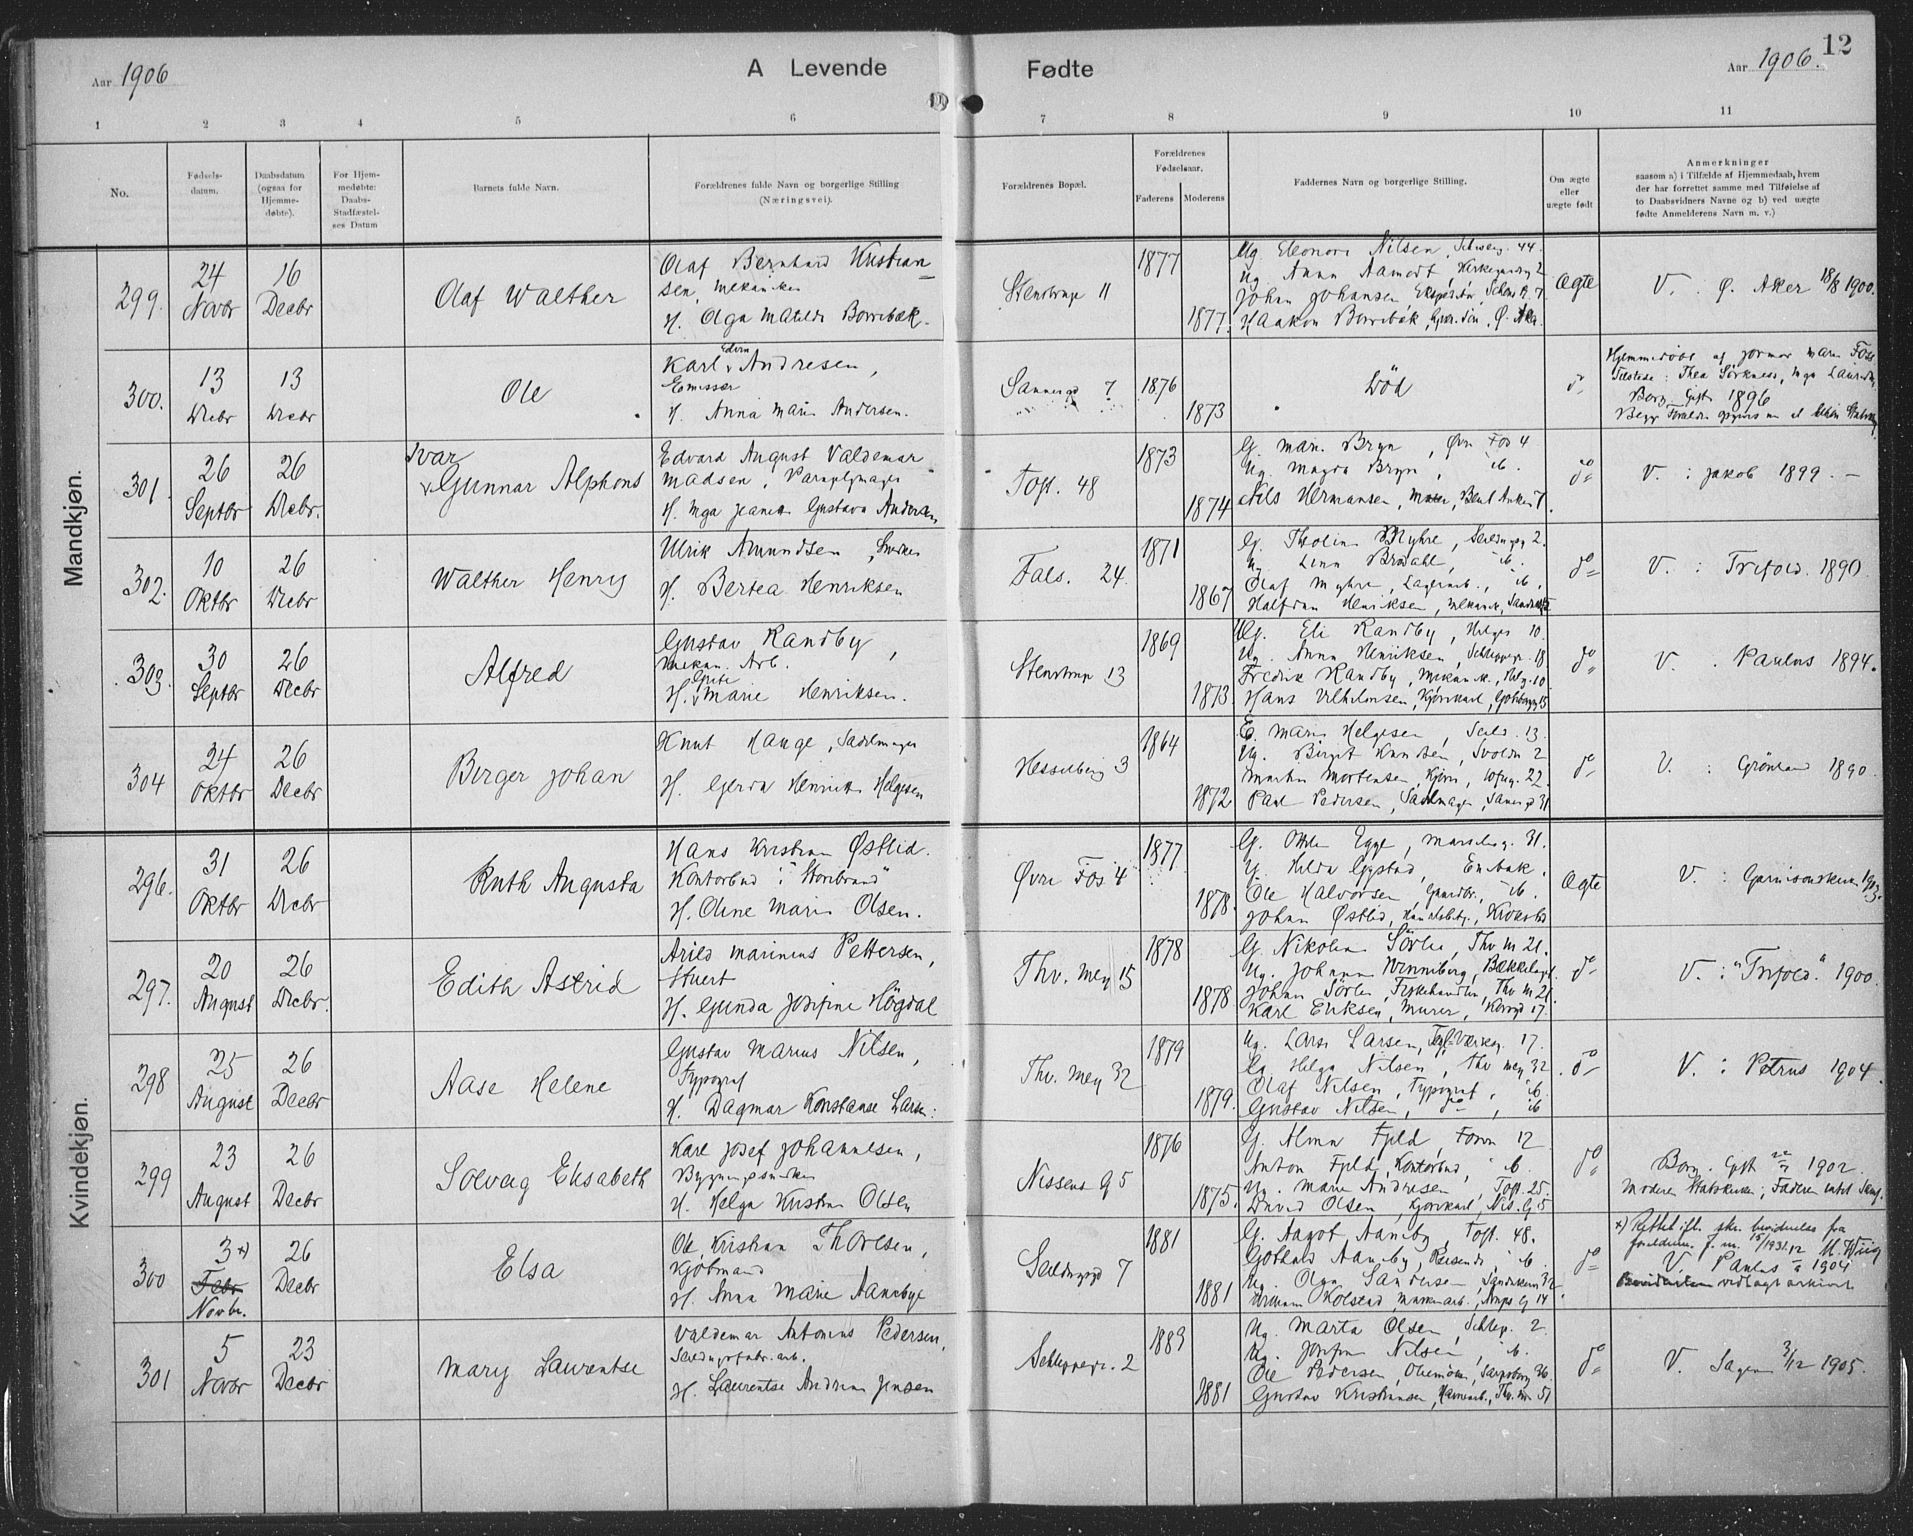 Aar 1906
A Levende
Fødte
12
Aar 1906.
1 2 3 4 5 6 7 8 9 10 11
No.
Fødsels-
datum.
Daabsdatum
(ogsaa for
Hjemme-
døbte).
For Hjem-
medøbte:
Daabs-
Stadfæstel-
ses Datum
Barnets fulde Navn.
Forældrenes fulde Navn og borgerlige Stilling
(Næringsvei).
Forældrenes Bopæl.
Forældrenes
Fødselsaar.
Faderens Moderens
Faddernes Navn og borgerlige Stilling.
Om ægte
eller
uægte født
Anmerkninger
saasom a) i Tilfælde af Hjemmedaab, hvem
der har forrettet samme med Tilføielse af
to Daabsvidners Navne og b) ved uægte
fødte Anmelderens Navn m. v.)
Mandkjøn.
299. 24 Novbr 16 Decbr Olaf Walther
Olaf Bernhard Kristian=
sen, mekaniker
H. Olga Matilde Borrebæk.
Stenstrupg 11 1877 1877.
Ug Eleonora Nilsen, Schweig. 44.
Ug Anna Aamodt, Kirkegardsg 2
Johan Johansen, Ekspeditør, Schous pl. 7
Haakon Borrebæk, Ø. Aker
Ægte
V. : Ø. Aker 18/8 1900.
300. 13 Decbr 13 Decbr Ole
Karl Edvin Andresen,
Emissær
H. Anna Marie Andersen.
Sannergd 7 1876 1873
Död
do
Hjemmedøbt af jormor Marie Foss
Tilstede: Thea Sörkness,
Borg. Gift 1896
301. 26 Septbr 26 Decbr. Ivar
Gunnar Alphons
Edvard August Valdemar
Madsen, Paraplymager
H. Inga Jeanette Gustava Andersen
Toft. 48 1873 1874
G. Marie Bryn, Øvre Fos 4
Ug. Magda Bryn, ib.
Nils Hermansen, Maler, Bent Ankers 7.
do
V. : Jakob 1899. —
302. 10 Oktbr 26 Decbr Walther Henry
Ulrik Amundsen, Snedker
H. Bertea Henriksen
Fals. 24. 1871 1867
G. Theoline Myhre, Seildugsg 2.
Ug Lina Brodahl, ib.
Olaf Myhre, Lagerarb., ib.
Halfdan Henriksen, Mekanik,
do
V. : Trefold. 1890.
303. 30 Septbr 26 Decbr Alfred
Gustav Randby,
Mekan. Arb.
H. Grete Marie Henriksen.
Stenstrupg 13 1869 1873
Ug. Eli Randby, Helges 10.
Ug. Anna Henriksen, Schleppegr. 18
Fredrik Randby, Mekanik., Helg. 10
Hans Vilhelmsen, Kjørekarl, Gøteborgg 15
do
V. : Paulus 1894.
304 24 Oktbr 26 Decbr Birger Johan
Knut Hauge, Sadelmager
H. Gerda Henriette Helgesen
Hesselberg 3 1864 1872
E. Marie Helgesen, Seild. 13.
Ug. Birgit Knudsen, Svoldr 2
Martin Mortensen,
Paul Pedersen, Sadelmager, Sannergd 31
do
V. : Grönland 1890.
Kvindekjøn.
296. 31 Oktbr 26 Decbr Ruth Augusta
Hans Kristian Østlid.
Kontorbud i "Storebrand"
H. Oline Marie Olsen.
Øvre Fos 4 1877 1878.
G. Othilie Egge, Marselisg. 31.
Ug. Hilda Egstad, Enebak.
Ole Halvorsen, Gaardbr., ib.
Johan Østlid, Handelsbetj., Krokstad
Ægte
V. : Garnisonskirken 1903.
297. 20 August 26 Decbr. Edith Astrid
Arild Marinius Pettersen,
Stuert
H. Gunda Josefine Høgdal
Thv. Mey 15 1878 1878
G. Nikolina Sörlie, Thv M 21.
Ug. Johanna Winniberg, Bækkelaget
Johan Sörlie, Fiskehandler, Thv M 21.
Karl Eriksen, Murer, Korsgd 17.
do
V. : "Trefold." 1900.
298 25 August 26 Decbr Aase Helene
Gustav Marius Nilsen,
Typograf
H. Dagmar Konstanse Larsen
Thv. Mey 32 1879 1879.
Ug. Lars Larsen, Teglværksg. 17.
Ug. Helga Nilsen, Thv Mey 32
Olaf Nilsen, Typograf, ib
Gustav Nilsen, do, ib
do
V. : Petrus 1904.
299 23 August 26 Decbr Solveig Elisabeth
Karl Josef Johannesen,
Bygningssnedker
H. Helga Kristine Olsen
Nissens G 5 1876 1875.
G. Alma Fjeld, Fossv 12
Anton Fjeld, Kontorbud, ib.
Ug. Marie Andresen, Toft. 25.
David Olsen, Kjørekarl, Nis. G 5
do
Borg. Gift 1902.
Moderen Statskirken; Faderen intet Samf.
300 3 x) Febr Novbr. 26 Decbr Elsa
Ole Kristian Thorlsen,
Kjøbmand
H. Anna Marie Aaneby
Seildugsgd 7 1881 1881
G. Aagot Aaneby, Toft. 48.
Gothold Aaneby, Reisende, ib.
Ug. Olga Sandersen, Sandakerv 32
William Kolstad, Murerarb., Arups G 14
do
x) Rettet ifl. skr. bevidnelse fra
forældrene. J. nr. 15/1931. 12 M. Wiig
V. Paulus 1904
Bevidnelsen vedlagt arkivet
301 5 Novbr 23 Decbr Mary Laurentse
Valdemar Antonius Pedersen,
Seildugsfabr. arb.
H. Laurentse Andrine Jensen
Schleppegr. 2 1883 1881
Ug. Marta Olsen, Schlep. 2.
Ug. Josefine Nilsen, ib.
Ole Pedersen, Sarpsborgg 36.
Gustav Kristiansen, Havnearb., Thv. M 51
do
V. Sagen 3/12 1905.